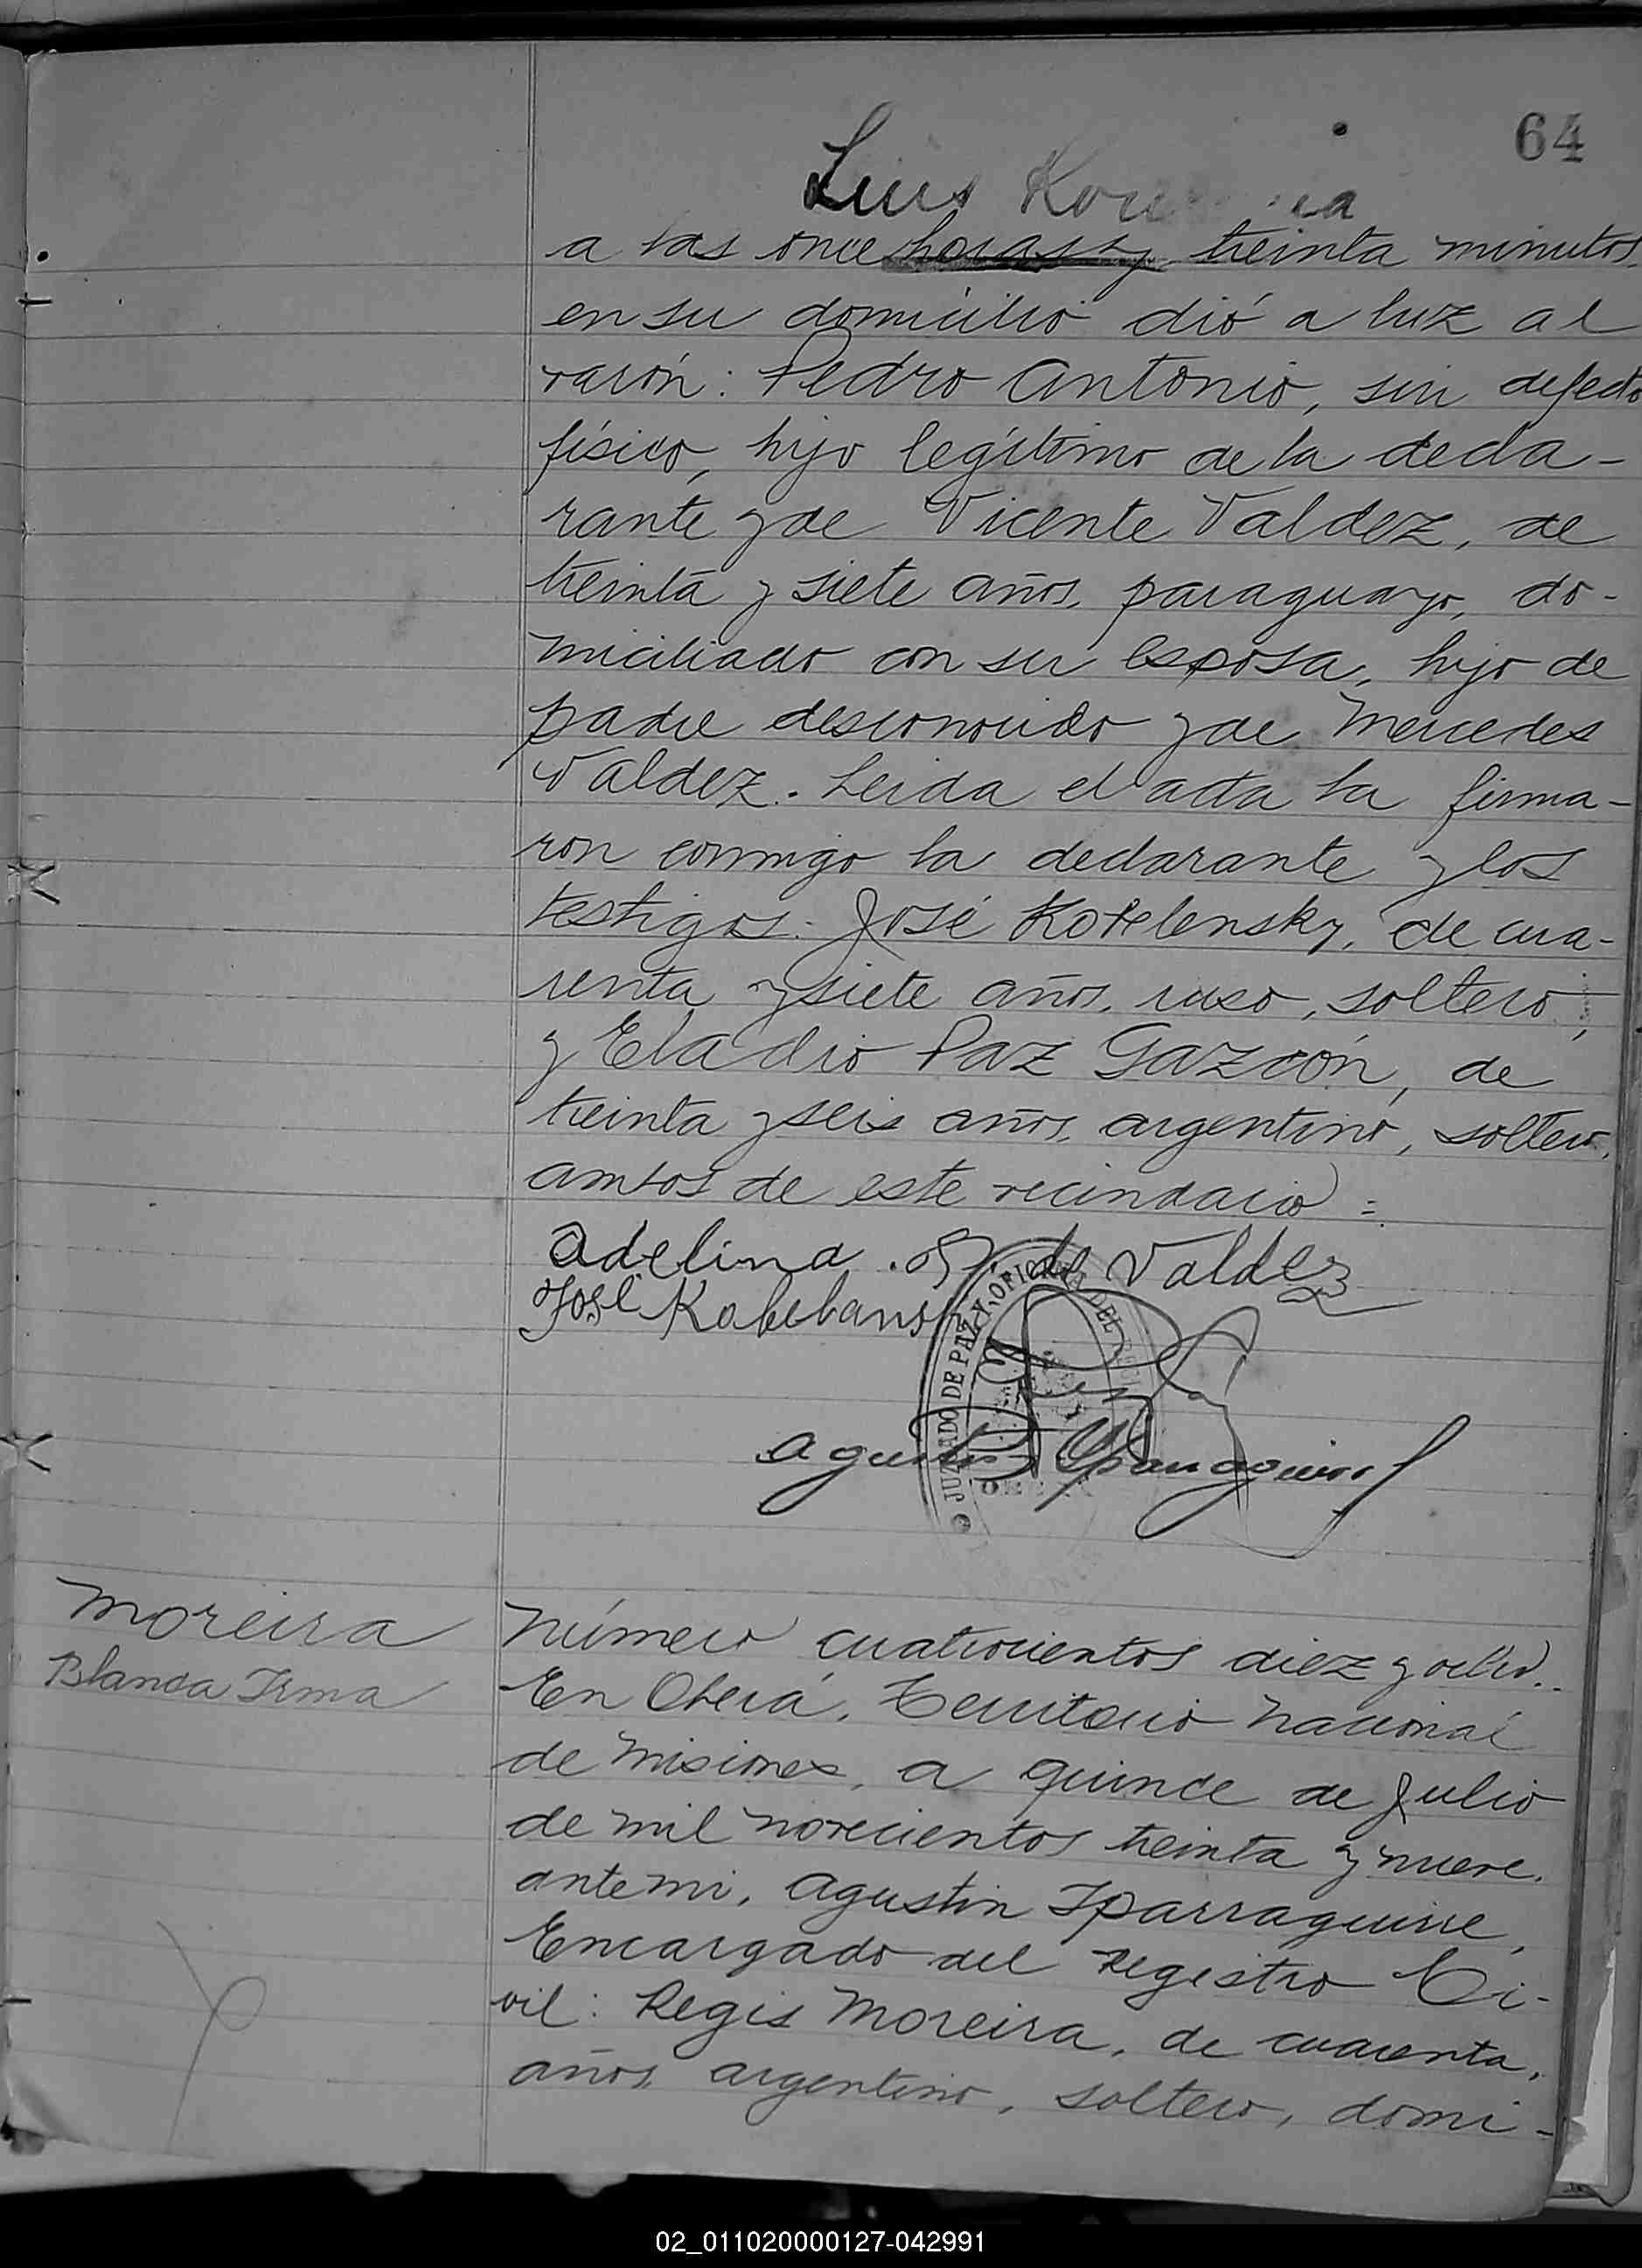 64
Luis
a las once horas y treinta minutos
en su domicilio dió a luz al
varón: Pedro Antonio, sin defecto
físico, hijo legítimo de la decla-
rante y de Vicente Valdez, de
treinta y siete años, paraguayo, do-
miciliado con su esposa, hijo de
padre desconocido y de Mercedes
Valdez. Leida el acta la firma-
ron conmigo la declarante y los
testigos: José Kotelensky, de cua-
renta y siete años, ruso, soltero,
y Eladio Paz Gazcón, de
treinta y seis años, argentino, soltero,
ambos de este vecindario =
Adelina . de Valdez
José
JUZGADO DE PAZ Y OFICINA DEL
Agustin
Moreira
Blanca Irma
Número cuatrocientos diez y ocho.
En Oberá, Territorio Nacional
de Misiones, a quince de Julio
de mil novecientos treinta y nueve,
ante mi, Agustin Iparraguirre,
Encargado del Registro Ci-
vil: Regis Moreira, de cuarenta,
años, argentino, soltero, domi-
02_011020000127-042991